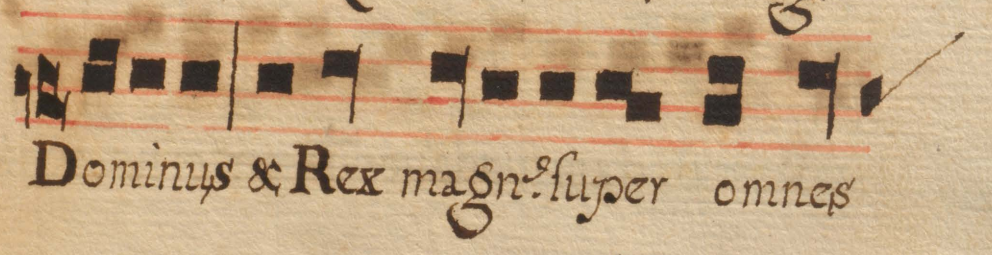 Dominus & Rex magn.⁹ ſuper omnes